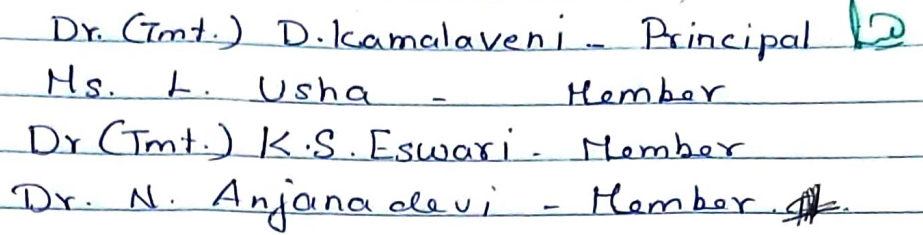 Dr. (Tmt.) D. Kamalaveni - Principal
Ms. L. Usha - Member
Dr (Tmt.) K.S. Eswari - Member
Dr. N. Anjana devi - Member